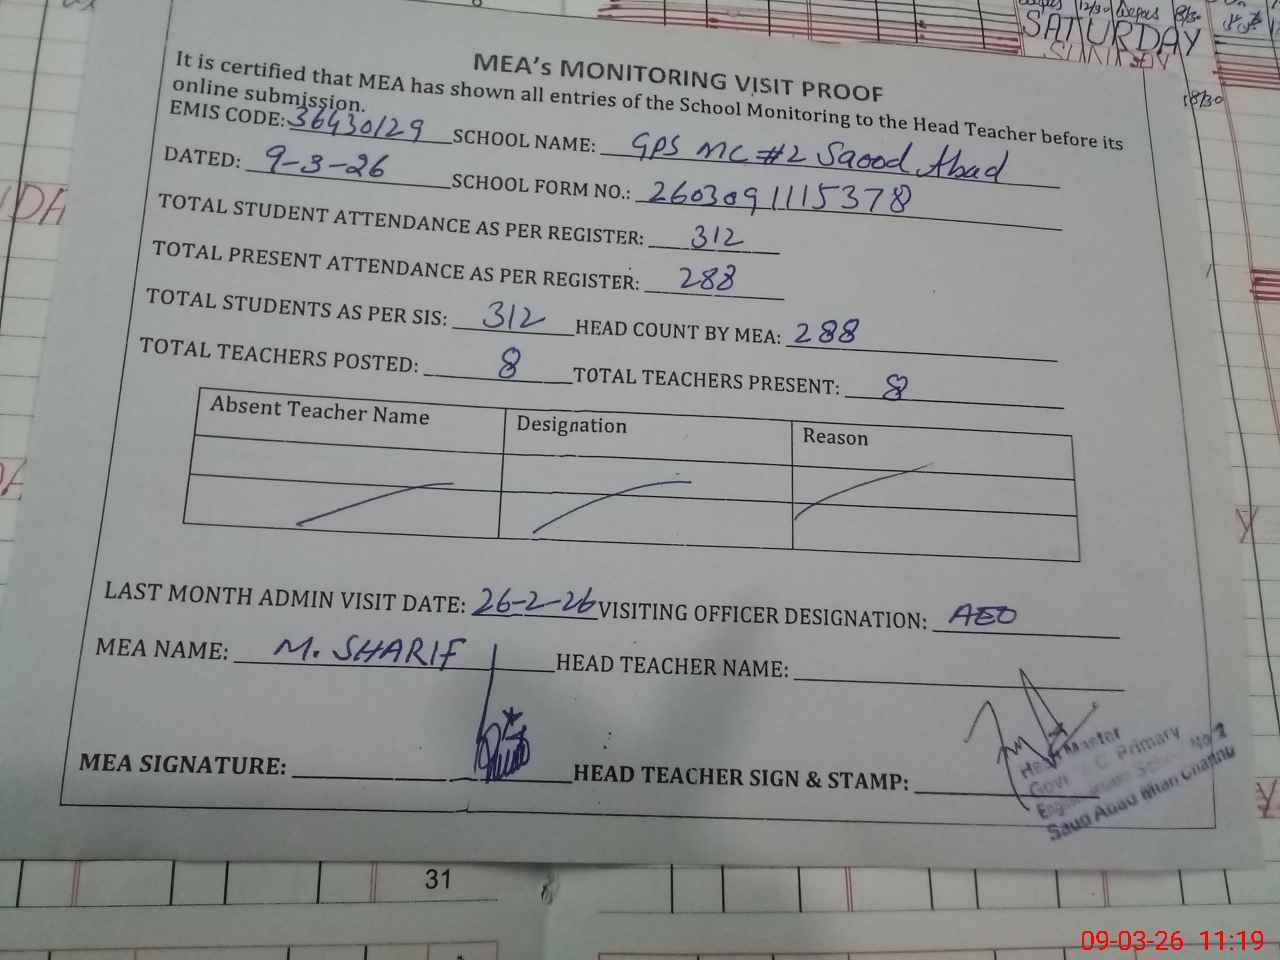 SATURDAY
SUNDAY
18/30
MEA's MONITORING VISIT PROOF
It is certified that MEA has shown all entries of the School Monitoring to the Head Teacher before its
online submission.
EMIS CODE: 36430129 SCHOOL NAME: GPS MC #2 Saood Abad
DATED: 9-3-26 SCHOOL FORM NO.: 2603091115378
TOTAL STUDENT ATTENDANCE AS PER REGISTER: 312
TOTAL PRESENT ATTENDANCE AS PER REGISTER: 288
TOTAL STUDENTS AS PER SIS: 312 HEAD COUNT BY MEA: 288
TOTAL TEACHERS POSTED: 8 TOTAL TEACHERS PRESENT: 8
Absent Teacher Name Designation Reason
LAST MONTH ADMIN VISIT DATE: 26-2-26 VISITING OFFICER DESIGNATION: AEO
MEA NAME: M. SHARIF HEAD TEACHER NAME:
MEA SIGNATURE: HEAD TEACHER SIGN & STAMP:
Head Master
Govt C Primary
No 2
Saud Abad Mian Channu
31
09-03-26 11:19